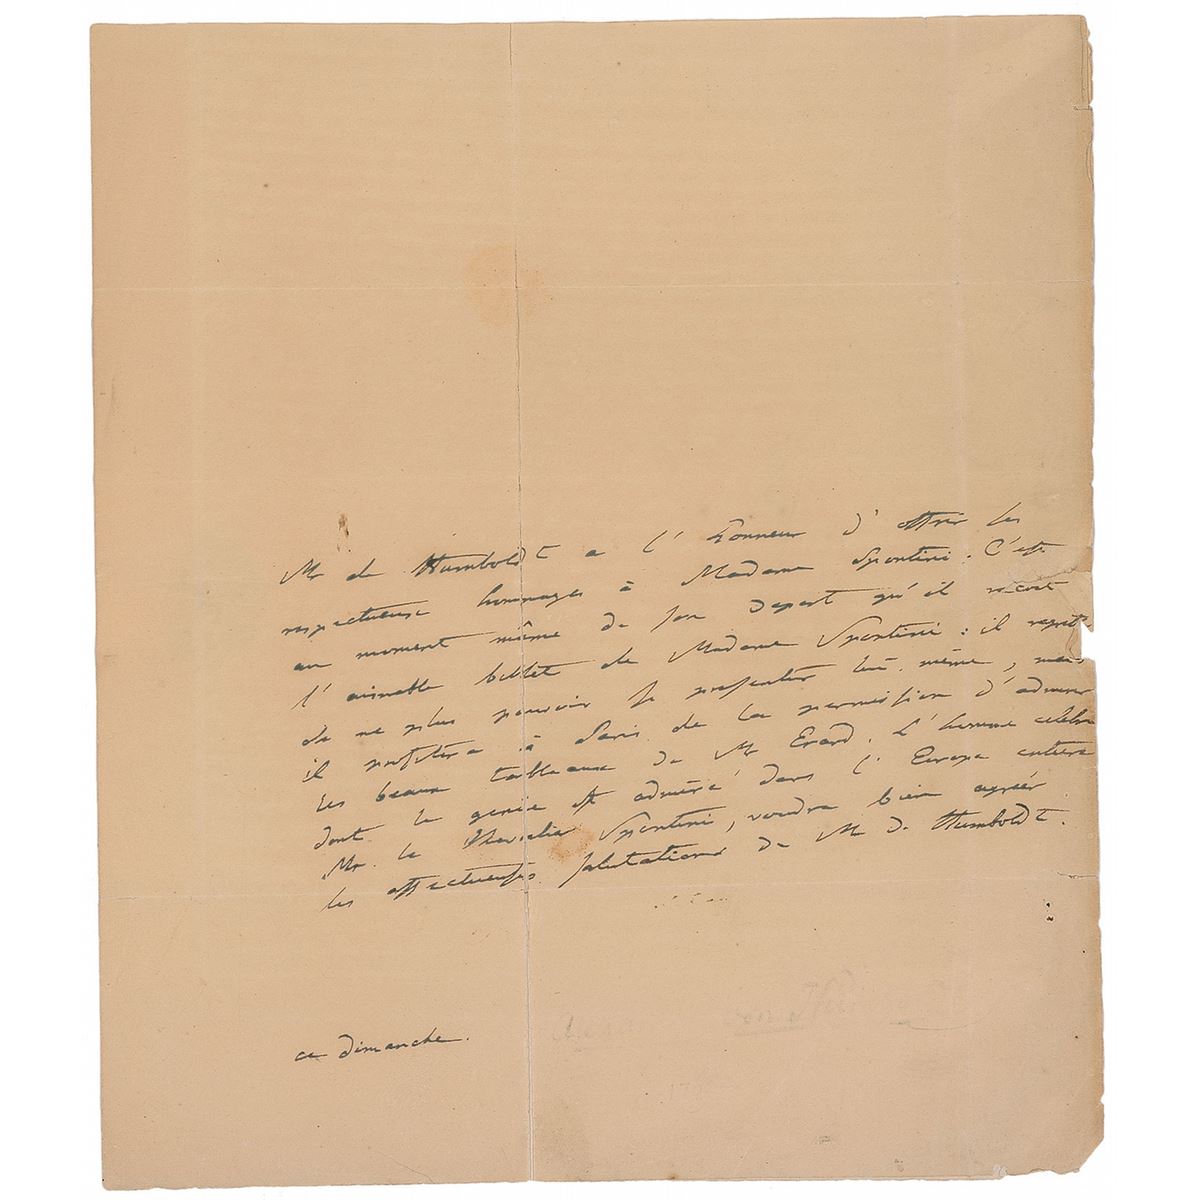 200
Mr de Humboldt a l'honneur d'offrir les
respectueux hommages à Madame Spontini. C'est
au moment même de son depart qu'il recoit
l'aimable billet de Madame Spontini: il regrette
de ne plus pouvoir se presenter lui-même, mais
il profitera à Paris de la permission d'admirer
les beaux tableaux de Mr Erard. L'homme celebre
dont le genie est admiré dans l'Europe entiere
Mr. le Chevalier Spontini, voudra bien agréer
les affectueuses salutations de Mr de Humboldt.
ce dimanche.
von